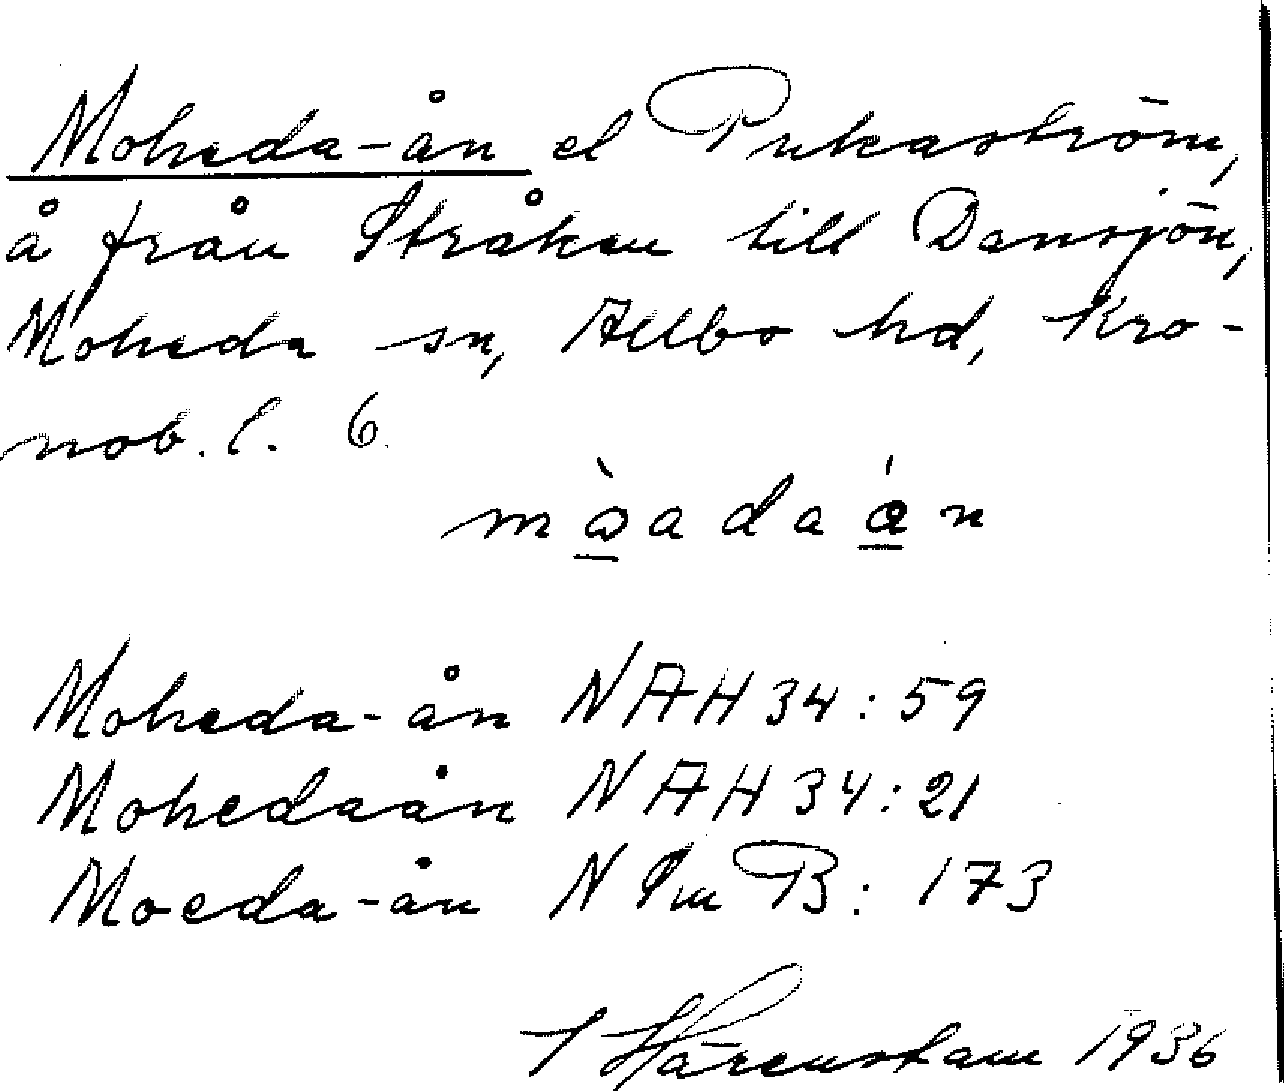 Moheda-ån el Pukaström,
å från Stråken till Dansjön,
Moheda sn, Allbo hd, Kro-
nob. l. 6.
Moheda-ån NAH 34:59
Mohedaån NAH 34:21
Moeda-ån N Sm B: 173
Härenstam 1936